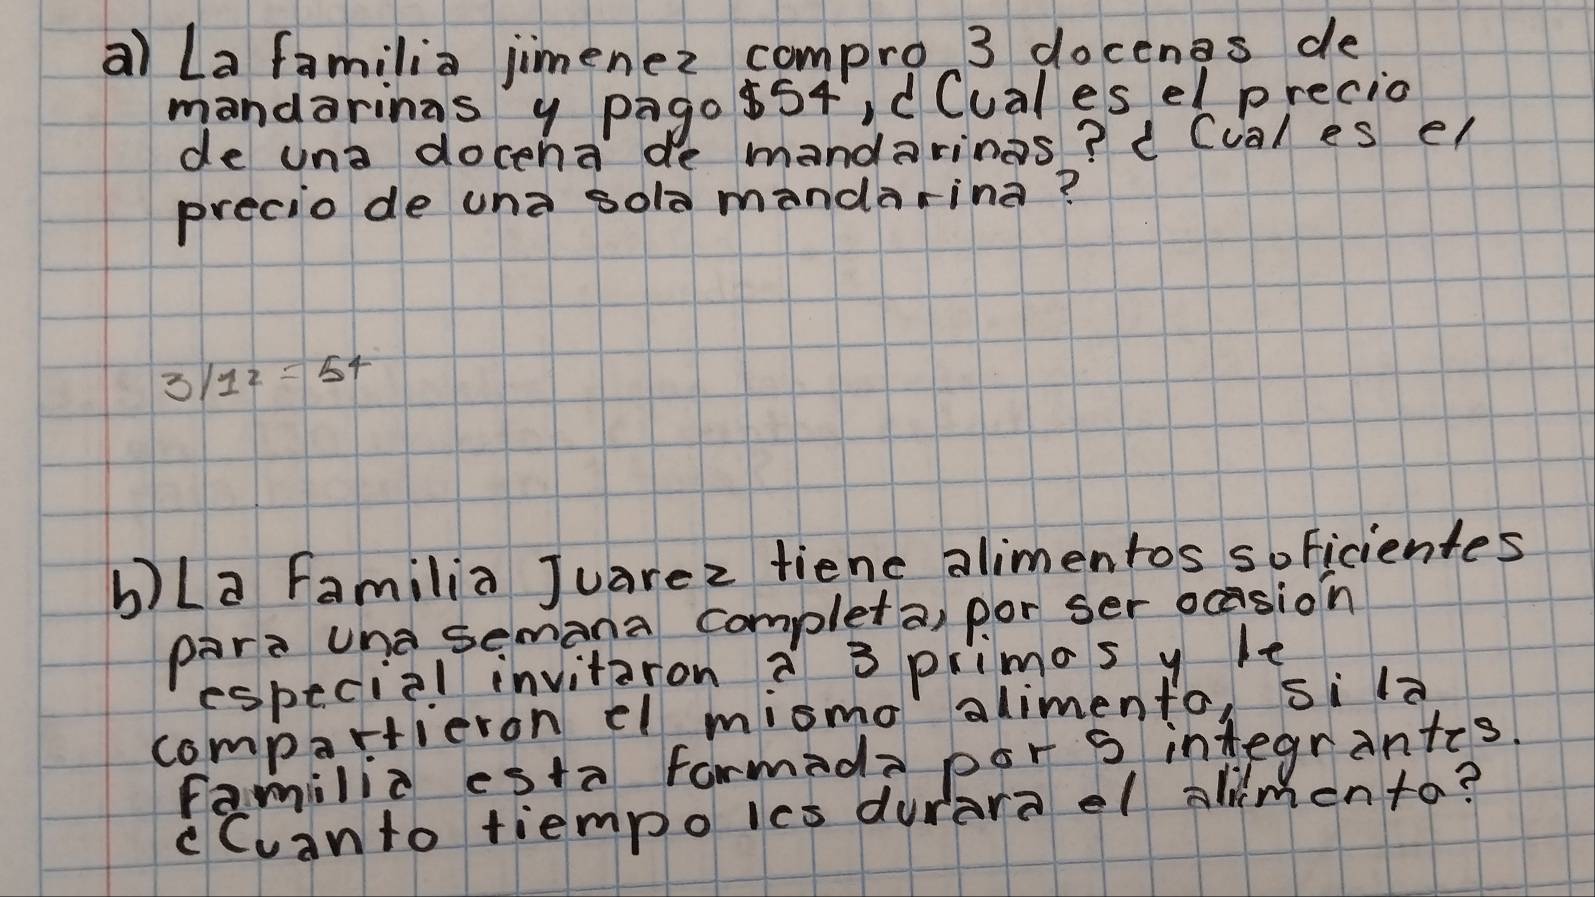 a) La familia jimenez compro 3 docenas de
mandarinas y pago $54, ¿Cual es el precio
de una docena de mandarinas? ¿Cual es el
precio de una sola mandarina?
3/12 = 54
b) La familia Juarez tiene alimentos suficientes
para una semana completa, por ser ocasión
especial invitaron a 3 primos y le
compartieron el mismo alimento, si la
familia esta formada por 5 integrantes.
¿Cuanto tiempo les durara el alimento?